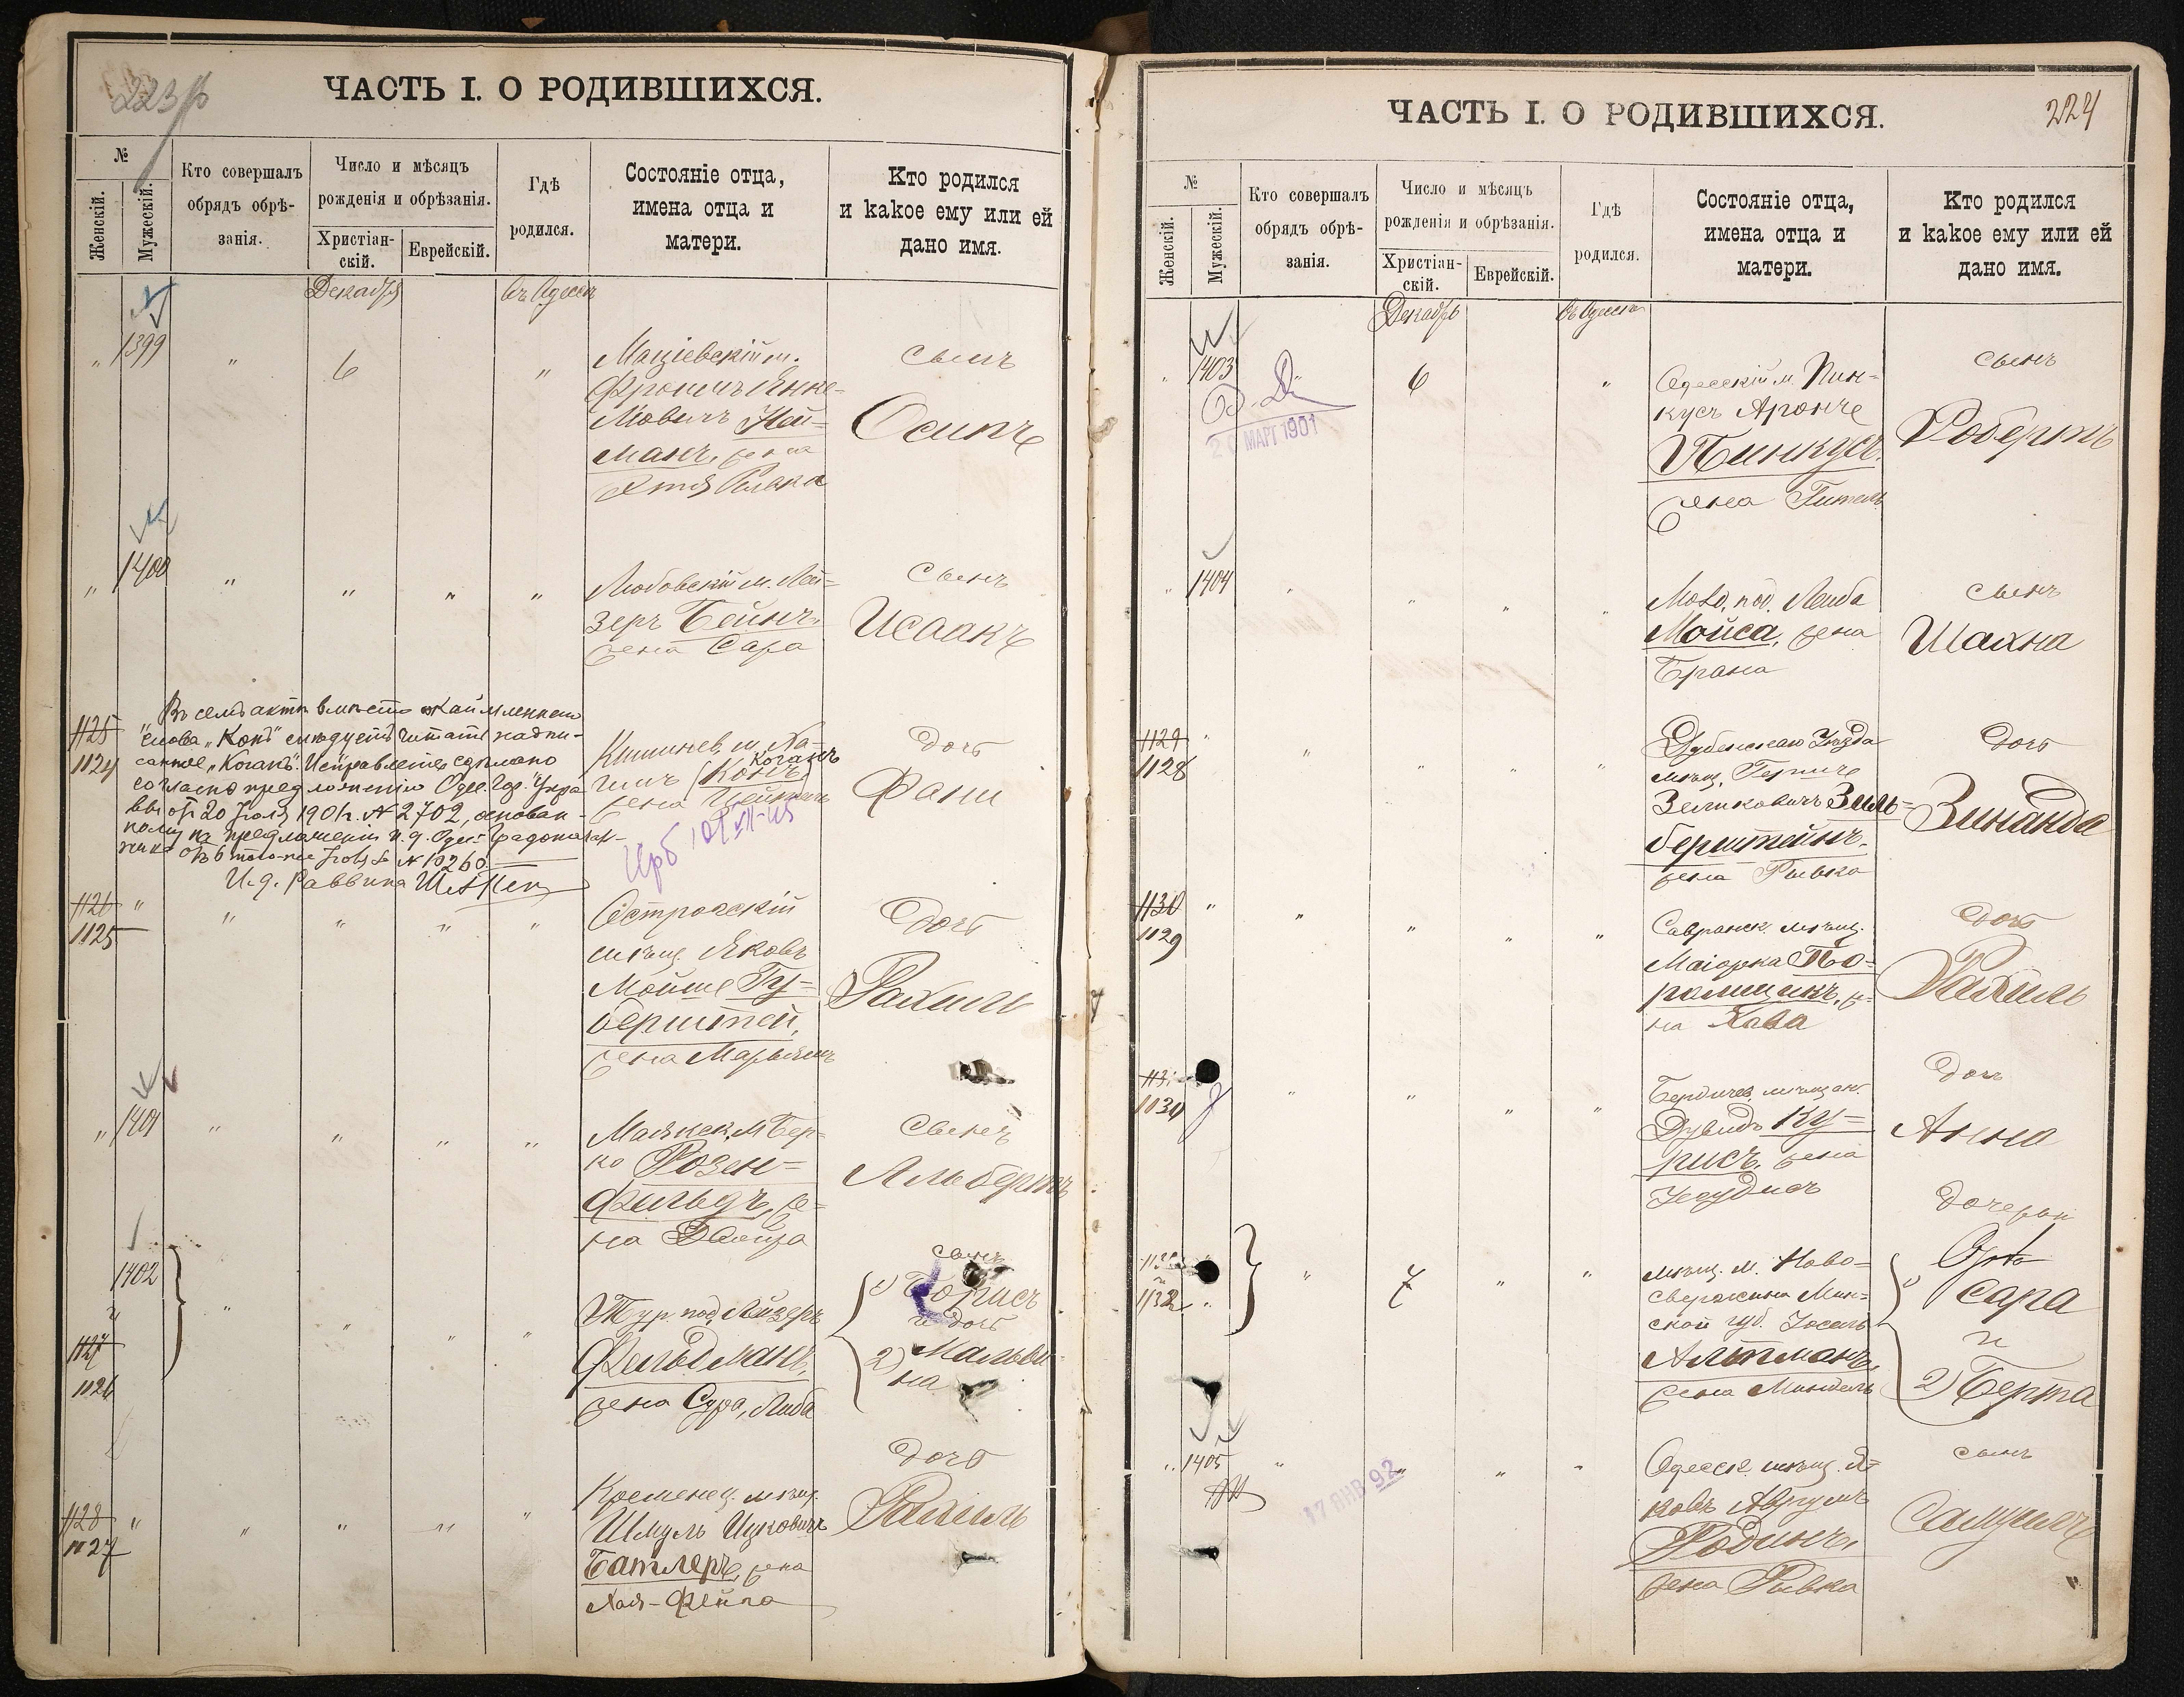 223
ЧАСТЬ I. О РОДИВШИХСЯ.
№
Женскій.
Мужескій.
Кто совершалъ
обрядъ обрѣ-
занія.
Число и мѣсяцъ
рожденія и обрѣзанія.
Христіан-
скій.
Еврейскій.
Гдѣ
родился.
Состояніе отца,
имена отца и
матери.
Кто родился
и какое ему или ей
дано имя.
Декабря
въ Одессѣ
„ 1399 „ 6 „
м.
Янке-
левичъ Ней-
манъ, жена
Ривка
сынъ
Осипъ
„ 1400 „ „ „ „
Любовскій м. Лей-
зеръ Бейнъ,
жена Сара
сынъ
Исаакъ
1125 „
1124
Въ семъ актѣ вмѣсто
слова „Конъ" слѣдуетъ читать надпи-
санное „Коганъ". Исправленіе сдѣлано
согласно предложенію Одес. Гор. Упра
вы отъ 20 Іюля 1901 г. № 2702, основан-
ному на предложеніи и. д. Одес. Градоначаль-
ника отъ 6 того-же Іюля за № 10260.
И. д. Раввина
Кишинев. м. Ха-
Коганъ
имъ (Конъ)
жена
дочь
Фани
1126 „ „ „ „ „
1125
Острожскій
мѣщ. Яковъ
Мойше Гу-
берштей,
жена Марьямъ
дочь
Рахиль
„ 1401 „ „ „ „
Маякск. м. Бер-
ко Розен-
фельдъ, же-
на
сынъ
Альбертъ
1402
и
1127
1126
„ „ „ „
Тур. под. Лейзеръ
Фельдманъ,
жена Сура, Либа
сынъ
1) Борисъ
и дочь
2) Мальви
на
1128 „ „ „ „ „
1127
Кременец. мѣщ.
Шмуль Ицковичъ
Батлеръ, жена
Хая-Фейга
дочь
Рахиль
224
ЧАСТЬ I. О РОДИВШИХСЯ.
№
Женскій.
Мужескій.
Кто совершалъ
обрядъ обрѣ-
занія.
Число и мѣсяцъ
рожденія и обрѣзанія.
Христіан-
скій.
Еврейскій.
Гдѣ
родился.
Состояніе отца,
имена отца и
матери.
Кто родился
и какое ему или ей
дано имя.
Декабрь
Въ Одессѣ
„ 1403 „ 6 „
20 МАРТ 1901
Одесскій м. Пин-
кусъ Аронъ
Пинкусъ,
жена Гитель
сынъ
Робертъ
„ 1404 „ „ „ „
Молд. под. Лейба
Мойса, жена
Брана
сынъ
Шахна
1129 „ „ „ „ „
1128
Дубенскаго Уѣзда
мѣщ. Гершъ
Зеликовичъ Зиль-
берштейнъ,
жена Ривка
дочь
Зинаида
1130 „ „ „ „ „
1129
Савранск. мѣщ.
Маіорка По-
ромщикъ, же-
на Хава
дочь
Рахиль
1131
1130
„ „ „ „
Бердичев. мѣщан.
Дувидъ Ку-
рисъ, жена
дочь
Анна
1132
„ 7 „ „
мѣщ. м. Ново-
свержена Мин-
ской губ. Іосель
Альтманъ,
жена Миндель
дочери
1) Сара
и
2) Берта
„ 1405 „ „ „ „
17 ЯНВ 92
Одесск. мѣщ. Я-
ковъ Аврумъ
Родинъ,
жена Ривка
сынъ
Самуилъ